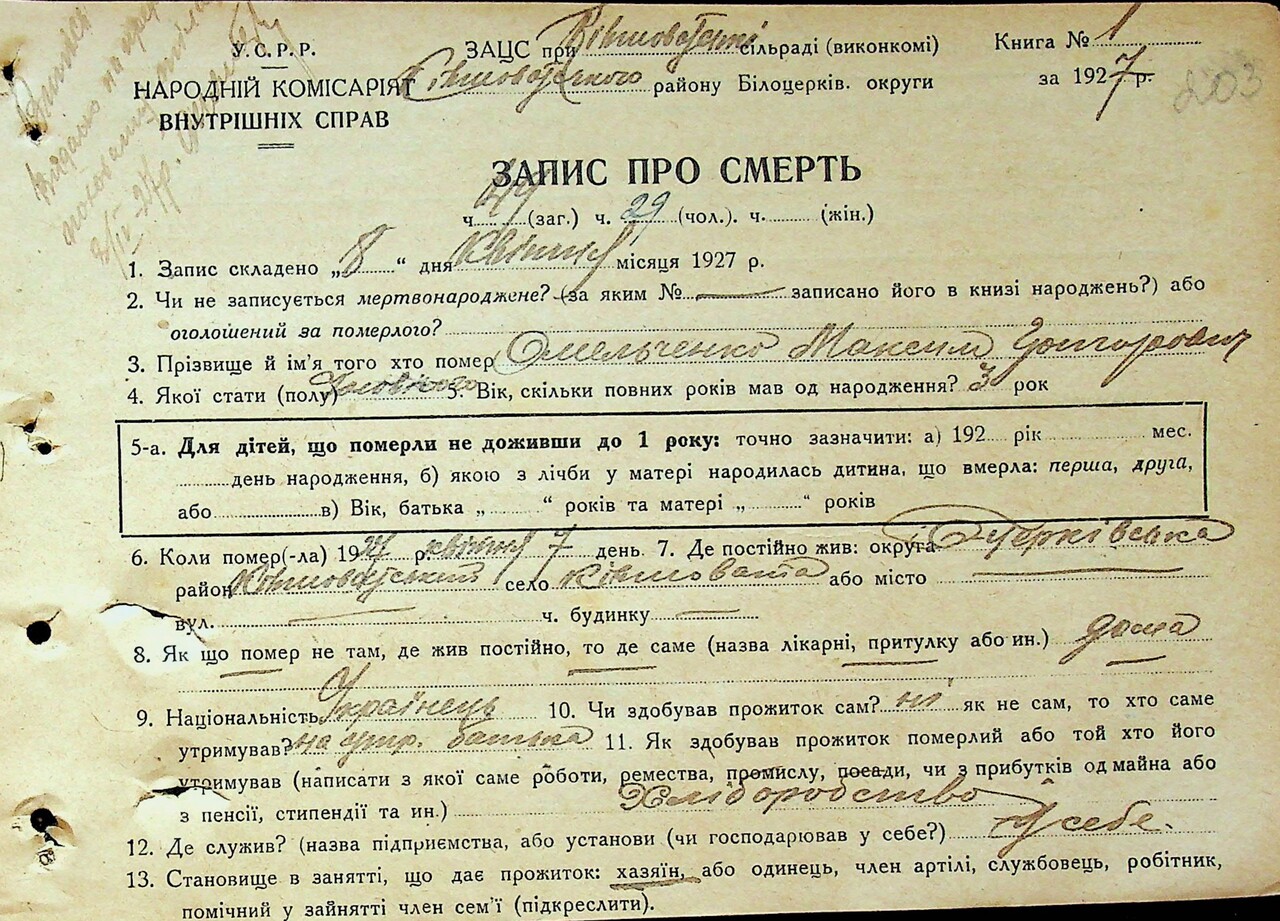 У.С.Р.Р.
НАРОДНІЙ КОМІСАРІЯТ
ВНУТРІШНІХ СПРАВ
ЗАЦС при Ківшоватській сільраді (виконкомі)
Ківшоватського району Білоцерків. округи
Книга № 1
за 1927 р.
203
ЗАПИС ПРО СМЕРТЬ
ч. 44 (заг.) ч. 29 (чол.). ч. (жін.)
1. Запис складено „8“ дня квітня місяця 1927 р.
2. Чи не записується мертвонароджене? (за яким № — записано його в книзі народжень?) або
оголошений за померлого?
3. Прізвище й ім'я того хто помер Омельченко Максим Григорович
4. Якої стати (полу) чоловічої 5. Вік, скільки повних років мав од народження? 3 рок
5-а. Для дітей, що померли не доживши до 1 року: точно зазначити: а) 192 рік мес.
день народження, б) якою з лічби у матері народилась дитина, що вмерла: перша, друга,
або в) Вік, батька „ “ років та матері „ “ років
6. Коли помер(-ла) 1927 р. квітня 7 день 7. Де постійно жив: округа Б.Церківська
район Ківшоватський село Ківшовата або місто —
вул. — ч. будинку —
8. Як що помер не там, де жив постійно, то де саме (назва лікарні, притулку або ин.) дома
9. Національність Українець 10. Чи здобував прожиток сам? ні як не сам, то хто саме
утримував? на утр. батька 11. Як здобував прожиток померлий або той хто його
утримував (написати з якої саме роботи, ремества, промислу, посади, чи з прибутків од майна або
з пенсії, стипендії та ин.) Хліборобство
12. Де служив? (назва підприємства, або установи (чи господарював у себе?) У себе.
13. Становище в занятті, що дає прожиток: хазяїн, або одинець, член артілі, службовець, робітник,
помічний у зайнятті член сем'ї (підкреслити).